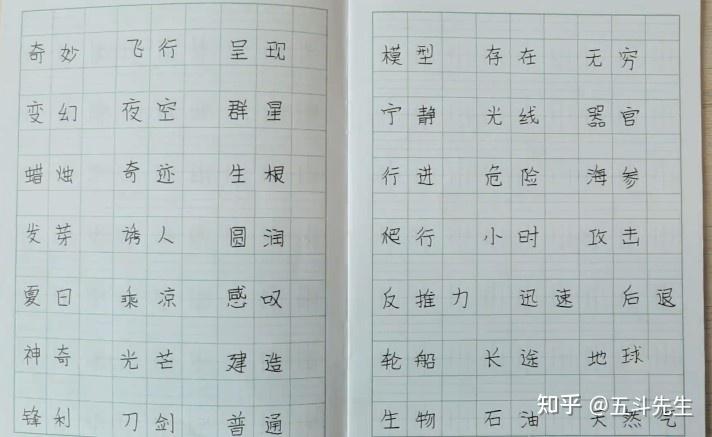 奇妙 飞行 呈现
变幻 夜空 群星
蜡烛 奇迹 生根
发芽 诱人 圆润
夏日 乘凉 感叹
神奇 光芒 建造
锋利 刀剑 普通
模型 存在 无穷
宁静 光线 器官
行进 危险 海参
爬行 小时 攻击
反推力 迅速 后退
轮船 长途 地球
生物 石油 天然气
知乎 @五斗先生